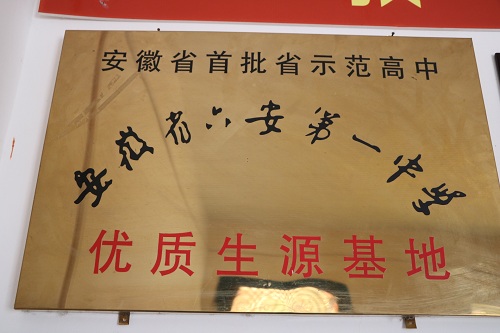 安徽省首批省示范高中
安徽省六安第一中学
优质生源基地